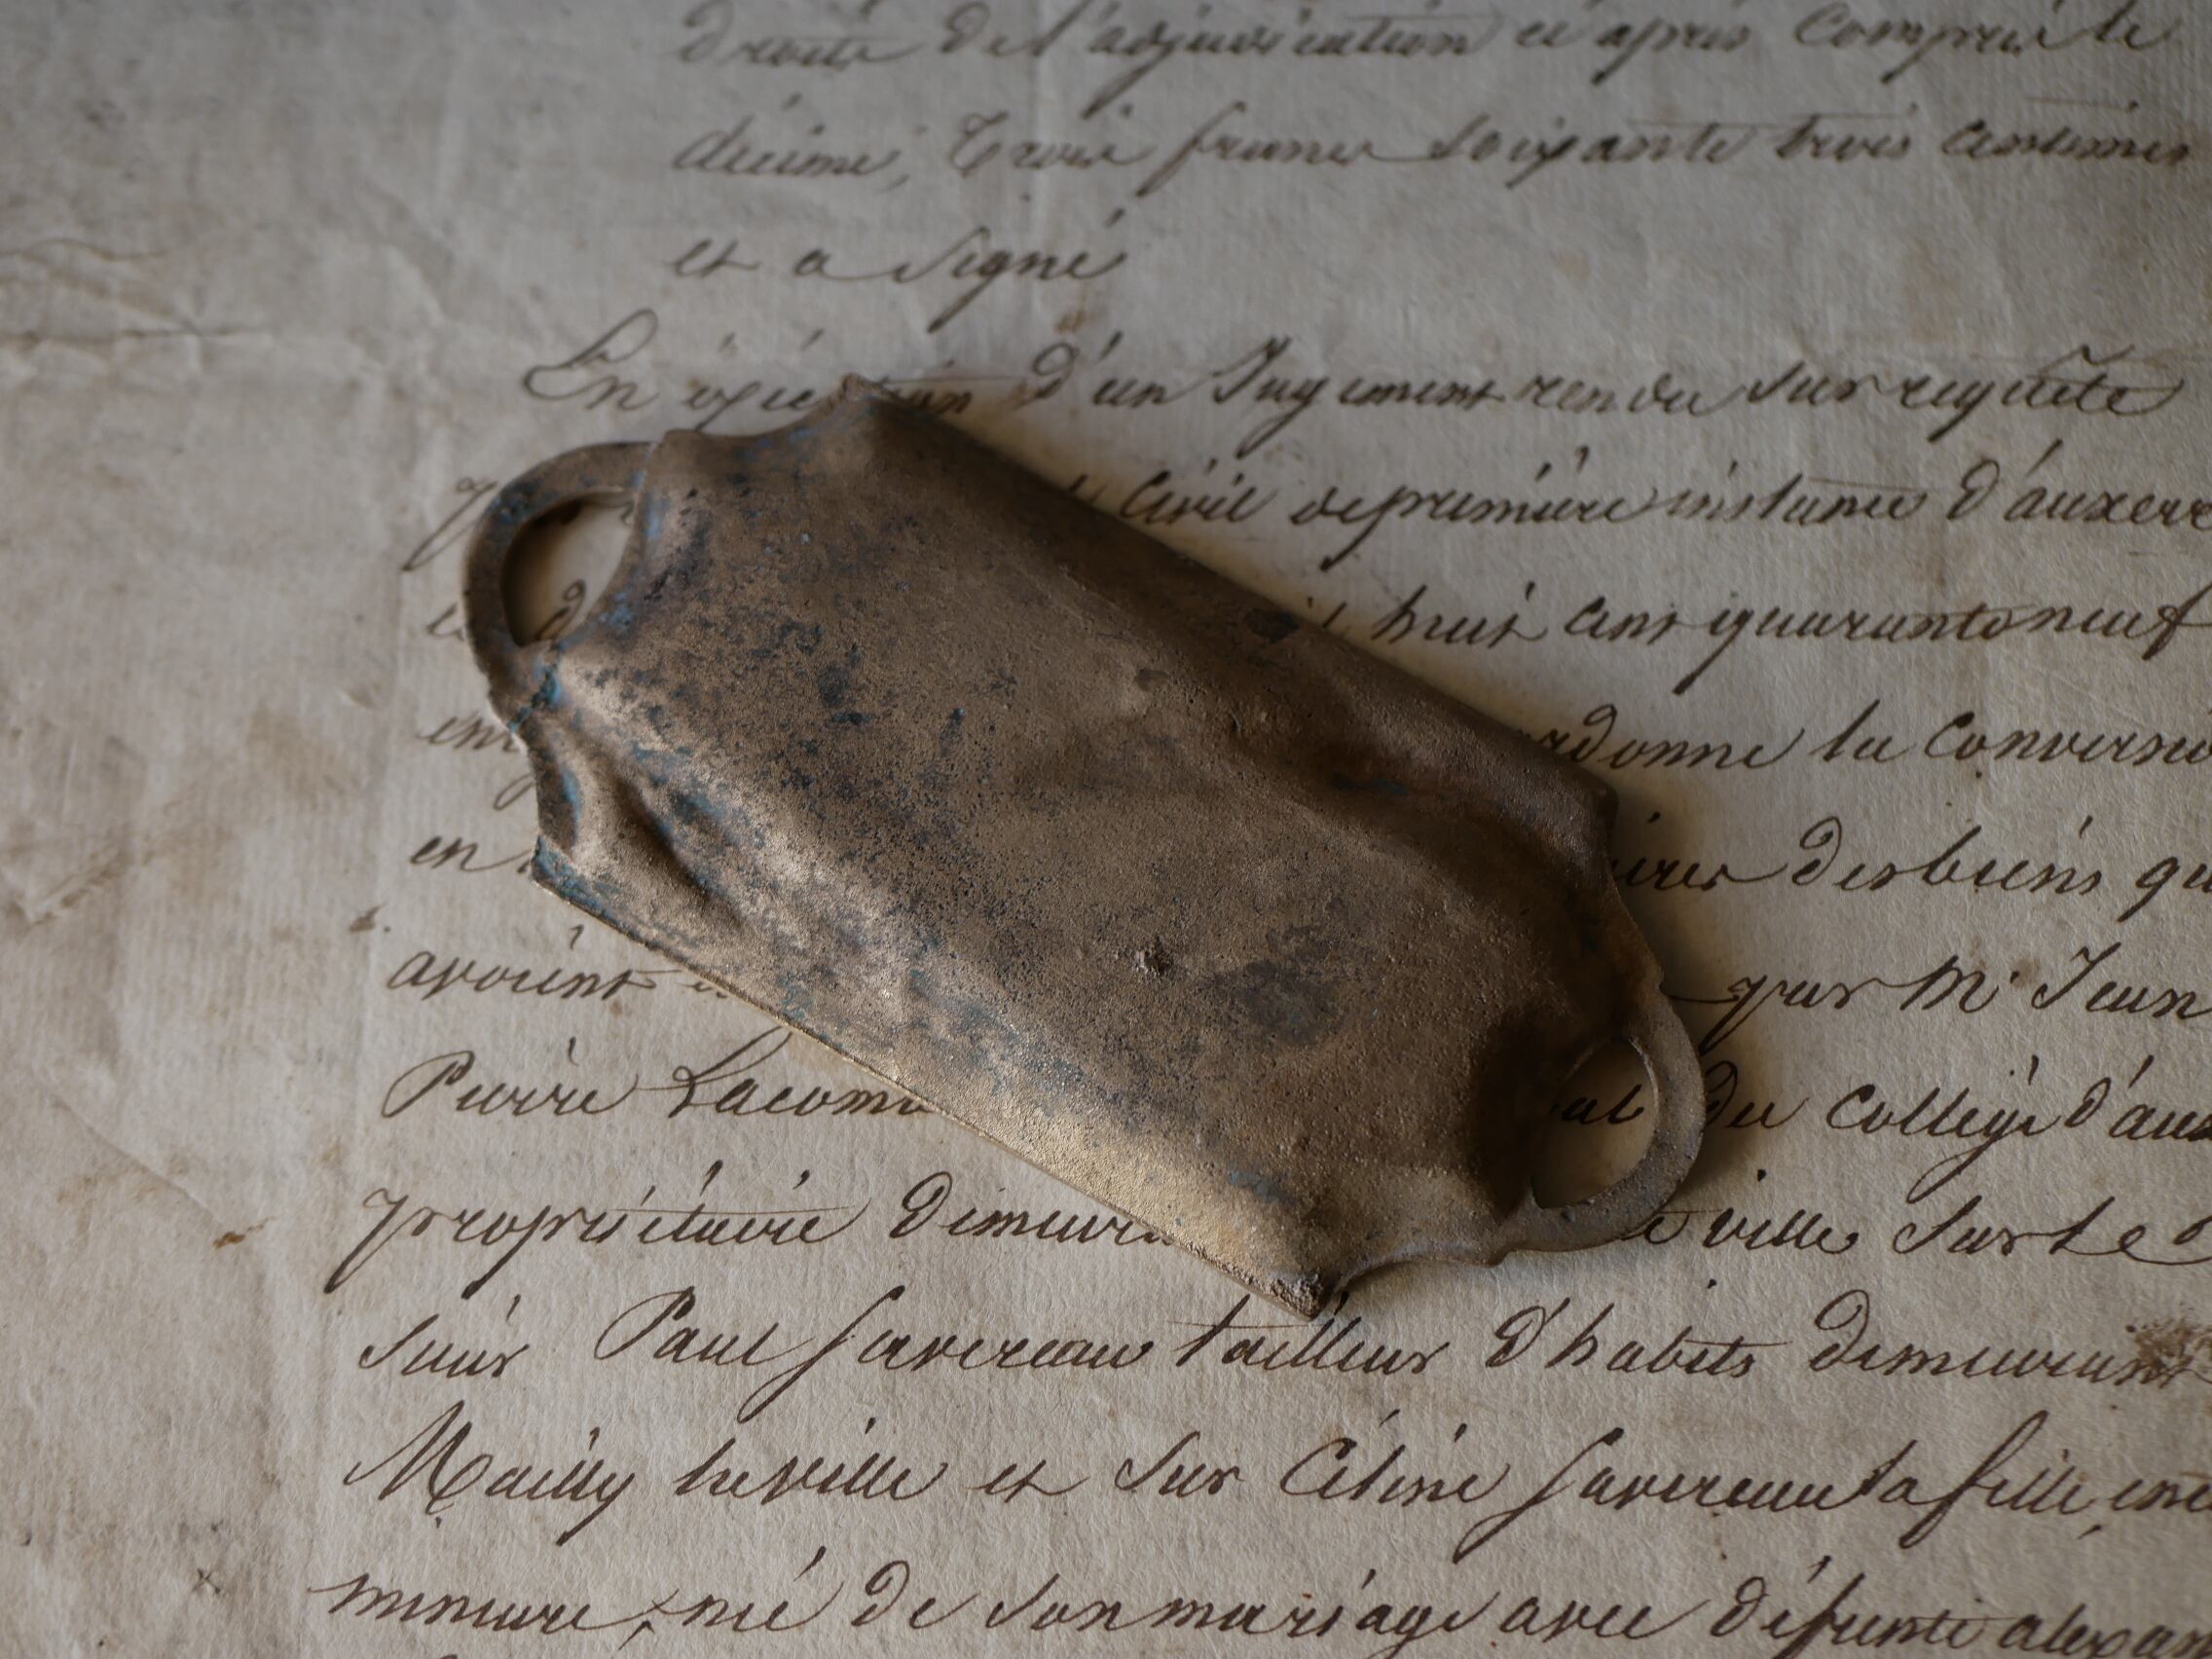 droits de l'adjudication ci après compris le
décime, Trois francs soixante trois centimes
et a signé
En d'un Jugement rendu sur requête
Civil de première instance d'auxerr
huit cent quarante neuf
ordonne la Convers
en des biens qu
avoient par Mr Jean
Pierre Lacom du Collège d'au
propriétaire Demeur ville sur le
sieur Paul Savereau tailleur d'habits demeurant
Mailly la ville et sur Céline Savereau sa fille, en
mineure, né de son mariage avec défunte alexan